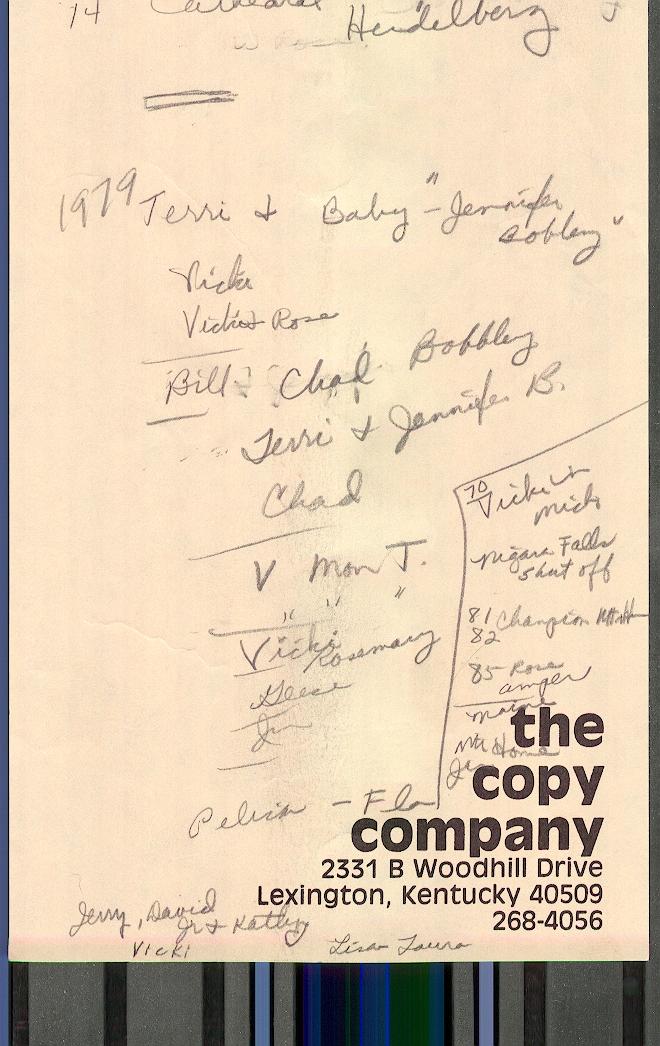 74 Cathedral
Heidelberg
1979 Terri & Baby "-Jennifer
Bobbley"
Nicki
Vicki & Rose
Bill & Chad Bobbley
Terri & Jennifer B.
Chad
V Mon T.
" " "
Vicki
Rosemary
Geese
Jr
Pelican - Fla
70
Vicki &
Nick
Niagara Falls
shut off
81 Champion
82
85 Rose
Maine
Mt Home
Jr
the
copy
company
2331 B Woodhill Drive
Lexington, Kentucky 40509
268-4056
Jerry, David
Jr & Kathy
Vicki
Lisa Laura